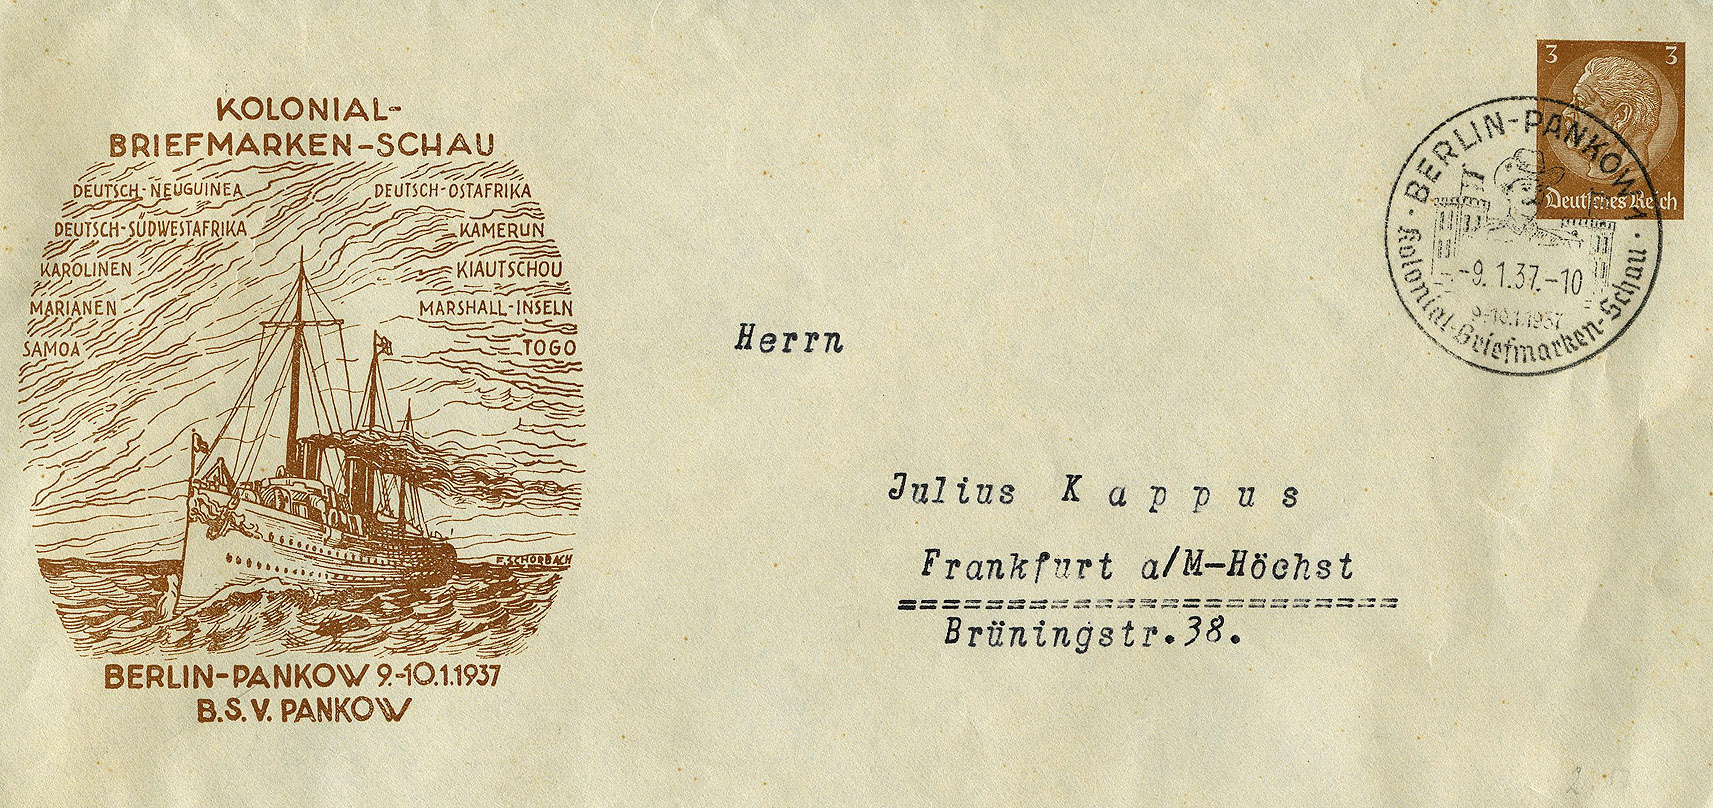 KOLONIAL-
BRIEFMARKEN-SCHAU
DEUTSCH-NEUGUINEA
DEUTSCH-OSTAFRIKA
DEUTSCH-SÜDWESTAFRIKA
KAMERUN
KAROLINEN
KIAUTSCHOU
MARIANEN
MARSHALL-INSELN
SAMOA
TOGO
F. SCHORBACH
BERLIN-PANKOW 9.-10.1.1937
B.S.V. PANKOW
3 3
Deutsches Reich
BERLIN-PANKOW 1
-9.1.37.-10
9.-10.1.1937
Kolonial-Briefmarken-Schau
Herrn
Julius Kappus
Frankfurt a/M-Höchst
=======================
Brüningstr.38.